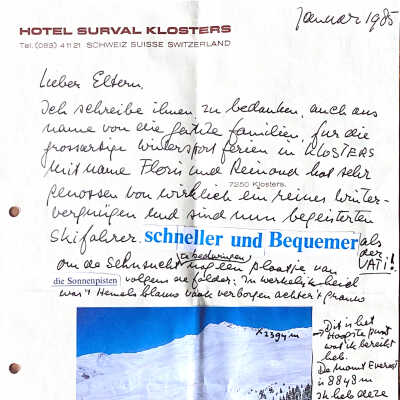 HOTEL SURVAL KLOSTERS
Januar 1985
Tel. (083) 4 11 21 SCHWEIZ SUISSE SWITZERLAND
Lieber Eltern.
Ich schreibe ihnen zu bedanken, auch aus
name von die familien, für die
grossartige Wintersport ferien in KLOSTERS
Mit name Floris und Reinoud hat sehr
7250 Klosters,
genossen von wirklich ein reines Winter-
vergnügen und sind nun begeisterten
Skifahrer. schneller und Bequemer als
der
VATI!
om de Sehnsucht te bedwingen nog een plaatje van
die Sonnenpisten volgens de folder: In werkelijkheid
was 't Hemels blauw vaak verborgen achter 't
x 2394 m
Dit is het
Hoogste punt
wat ik bereikt
heb.
De Mount Everest
is 8848 m
Ik heb deze